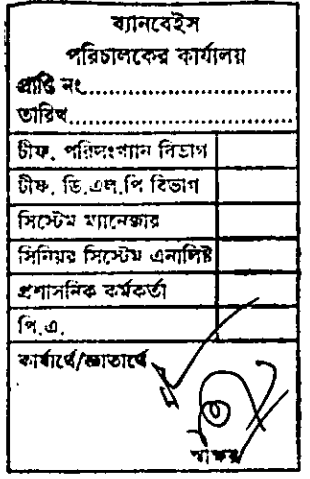 ব্যানবেইস
পরিচালকের কার্যালয়
প্রাপ্তি নং......................
তারিখ......................
চীফ, পরিসংখ্যান বিভাগ
চীফ, ডি.এল.পি বিভাগ
সিস্টেম ম্যানেজার
সিনিয়র সিস্টেম এনালিষ্ট
প্রশাসনিক কর্মকর্তা
পি.এ.
কার্যার্থে/জ্ঞাতার্থে
স্বাক্ষর